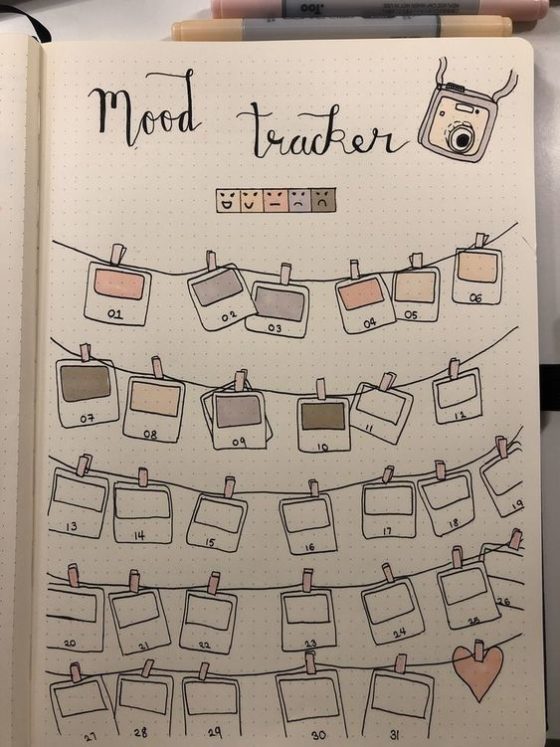 .Too
Mood tracker
01 02 03 04 05 06
07 08 09 10 11 12
13 14 15 16 17 18 19
20 21 22 23 24 25 26
27 28 29 30 31